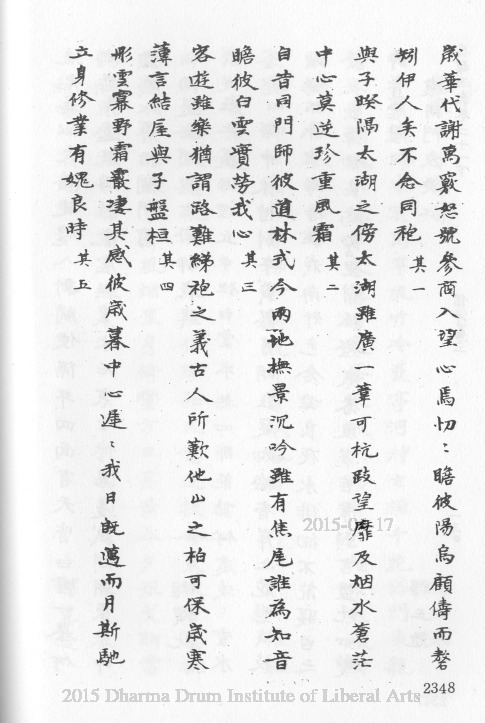 歲華代謝萬竅怒號參商入望心焉忉〻瞻彼陽烏顧儔而翔
矧伊人矣不念同袍 其一
與子暌隅太湖之傍太湖雖廣一葦可杭跂望靡及烟水蒼茫
中心莫逆珍重風霜 其二
自昔同門師彼道林式今兩地撫景沉吟雖有焦尾誰為知音
瞻彼白雲實勞我心 其三
客遊雖樂猶謂路難綈袍之義古人所歎他山之柏可保歲寒
薄言結屋與子盤桓 其四
彤雲冪野霜霰淒其感彼歲暮中心遲〻我日既邁而月斯馳
立身修業有媿良時 其五
2348
2015-0 17
2015 Dharma Drum Institute of Liberal Arts